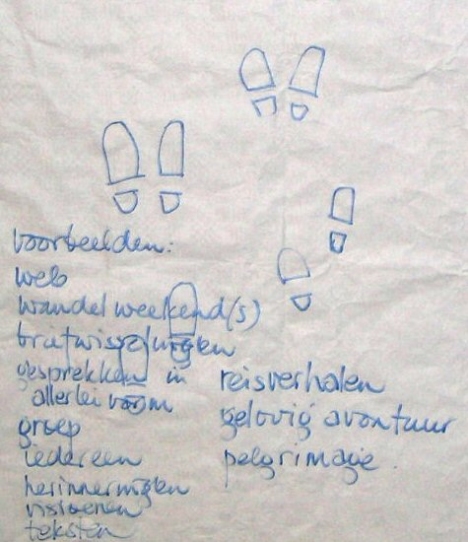 voorbeelden:
web
wandelweekend(s)
briefwisselingen
gesprekken in
allerlei vorm
groep
iedereen
herinneringen
visioenen
teksten
reisverhalen
gelovig avontuur
pelgrimage.